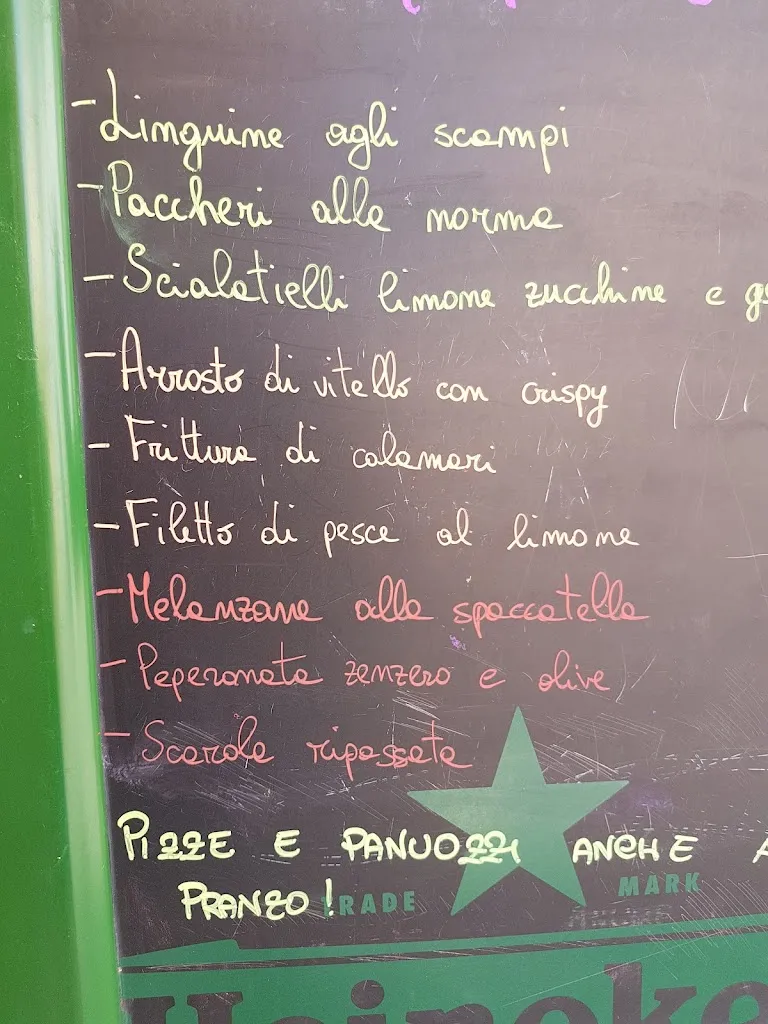 - Linguine agli scampi
- Paccheri alla norma
- Scialatielli limone zucchine e
- Arrosto di vitello con crispy
- Frittura di calamari
- Filetto di pesce al limone
- Melanzane alla spaccatella
- Peperonata zenzero e olive
- Scarola ripassata
PIZZE E PANUOZZI ANCHE A
PRANZO!
TRADE MARK
Heineke